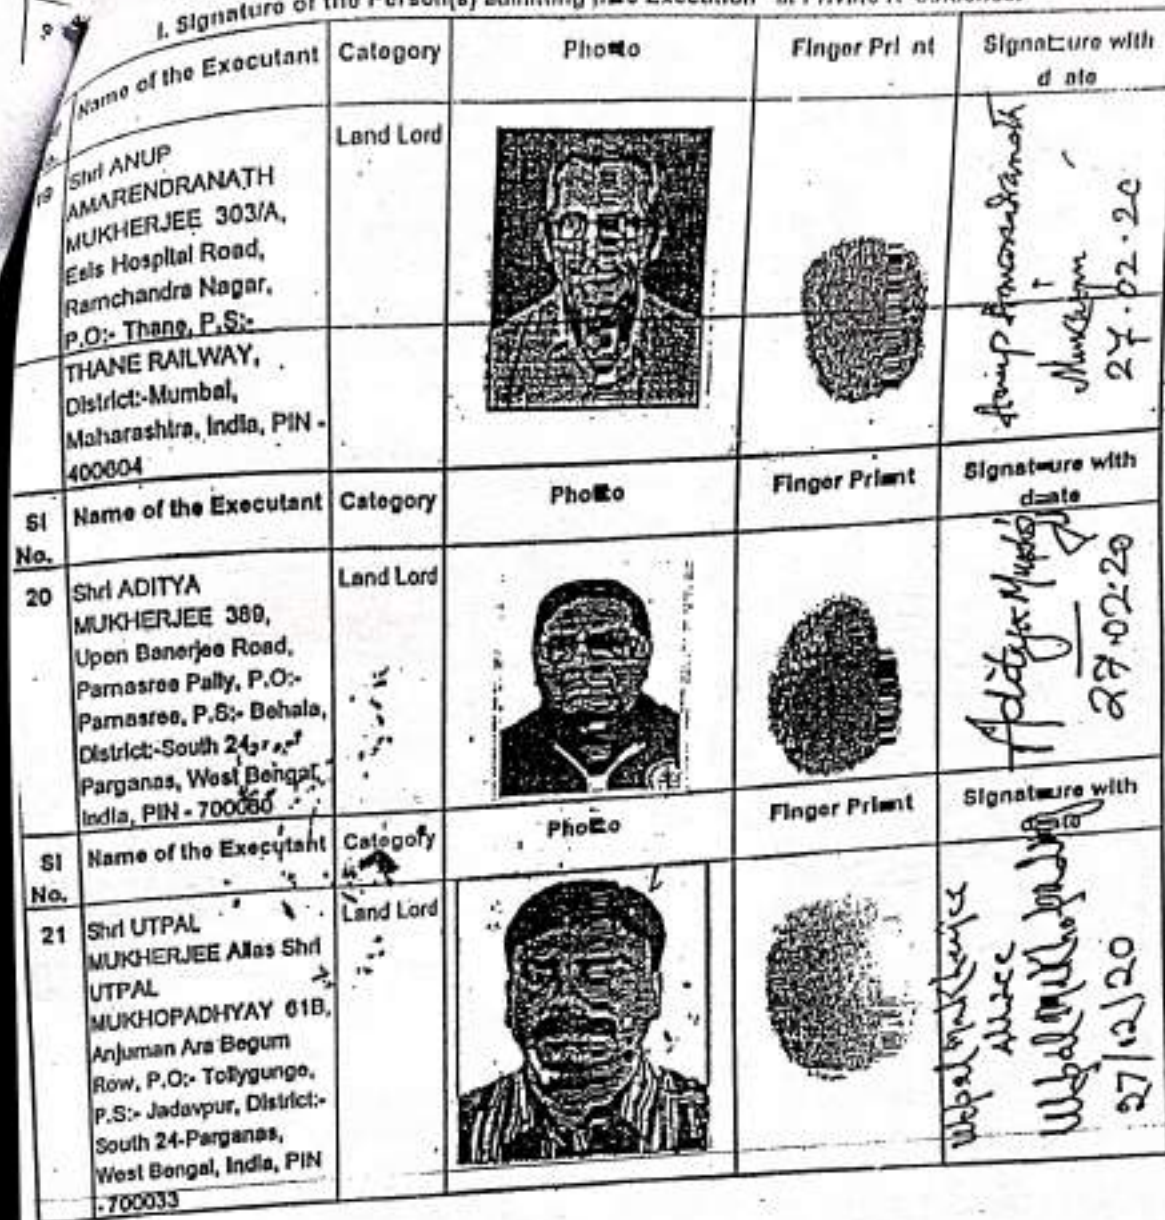 I. Signature of the Person(s) admitting the Execution at Private Residence.
Name of the Executant Category Photo Finger Print Signature with
date
19 Shri ANUP Land Lord
AMARENDRANATH
MUKHERJEE 303/A,
Esis Hospital Road,
Ramchandra Nagar,
P.O:- Thane, P.S:-
THANE RAILWAY,
District:-Mumbai,
Maharashtra, India, PIN -
400604
Anup Amarendranath
Mukherjee
27.02.20
Sl Name of the Executant Category Photo Finger Print Signature with
No. date
20 Shri ADITYA Land Lord
MUKHERJEE 389,
Upen Banerjee Road,
Parnasree Pally, P.O:-
Parnasree, P.S:- Behala,
District:-South 24
Parganas, West Bengal,
India, PIN - 700060
Aditya Mukherjee
27.02.20
Sl Name of the Executant Category Photo Finger Print Signature with
No. date
21 Shri UTPAL Land Lord
MUKHERJEE Alias Shri
UTPAL
MUKHOPADHYAY 61B,
Anjuman Ara Begum
Row, P.O:- Tollygunge,
P.S:- Jadavpur, District:-
South 24-Parganas,
West Bengal, India, PIN
- 700033
Utpal Mukherjee
Alice
Utpal Mukhopadhyay
27/12/20